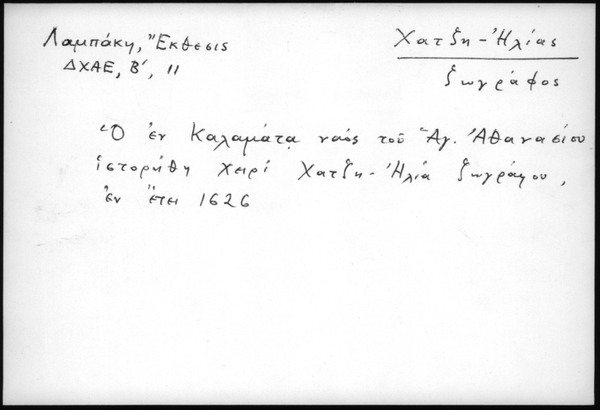 Λαμπάκη, Ἔκθεσις
ΔΧΑΕ, Β', 11
Χατζη-Ἠλίας
ζωγράφος
Ὁ ἐν Καλαμάτᾳ ναός τοῦ Ἁγ. Ἀθανασίου
ἱστορήθη χειρί Χατζη-Ἠλία ζωγράφου,
ἐν ἔτει 1626